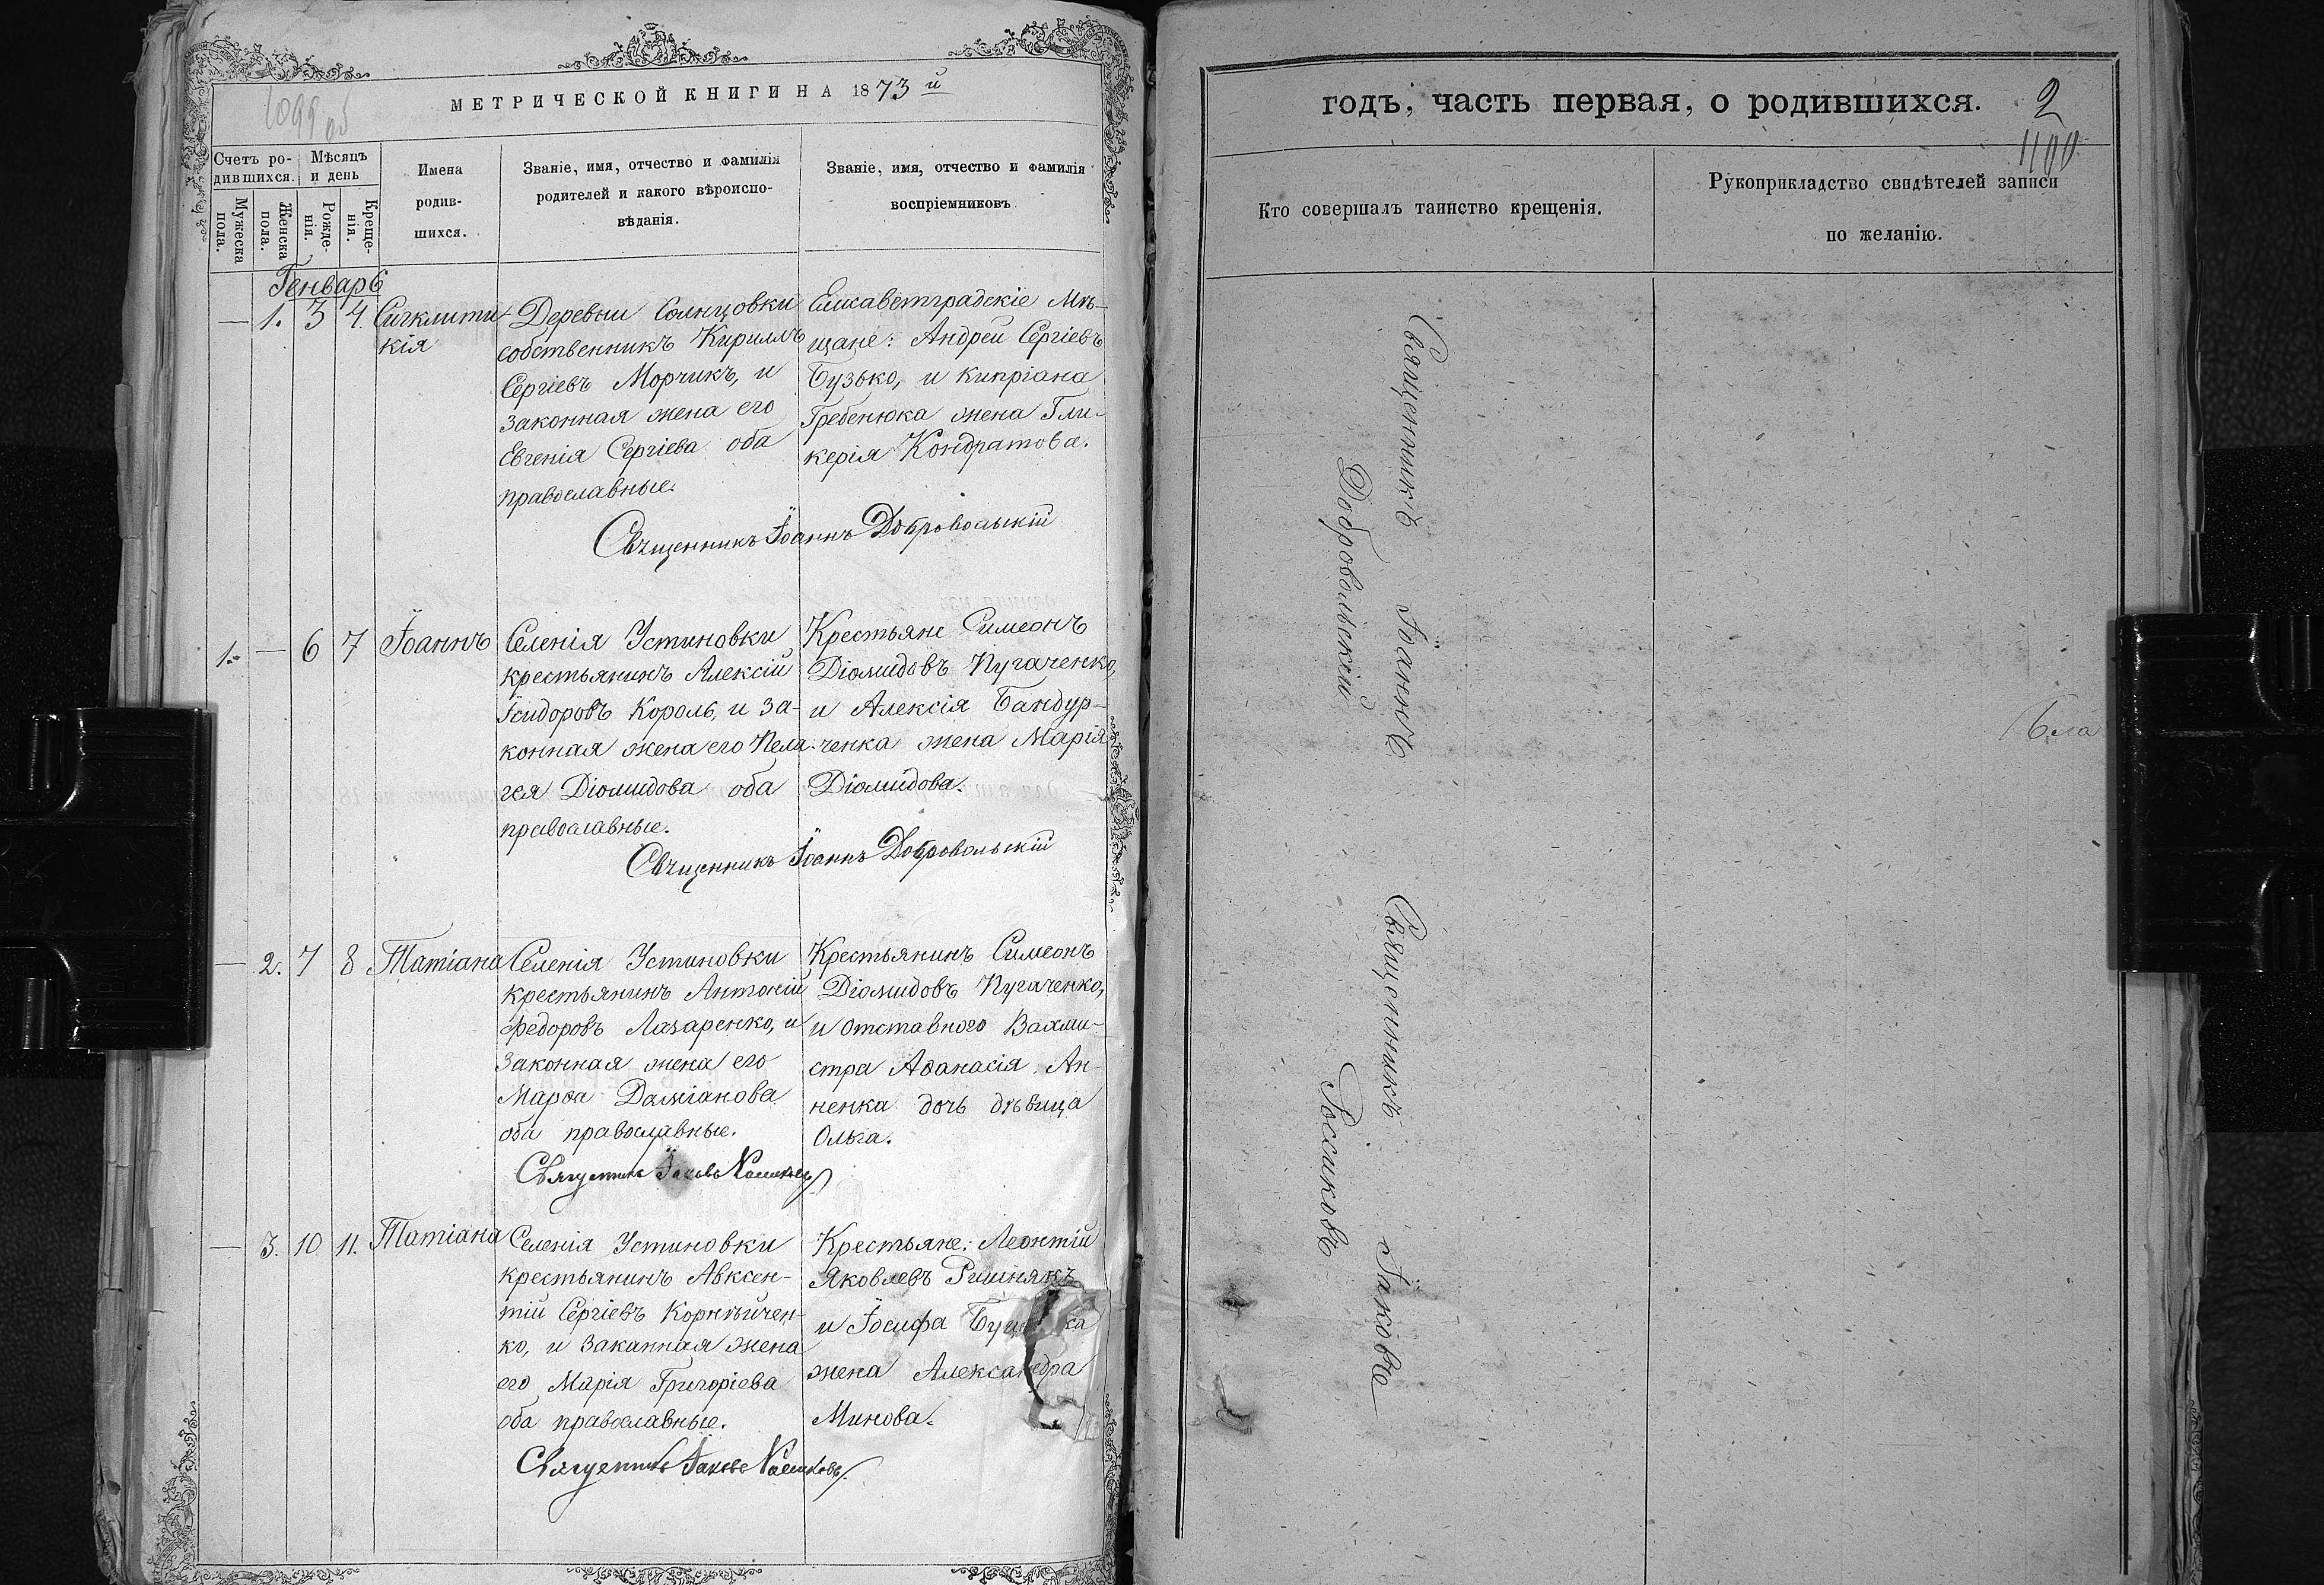 1099 об
МЕТРИЧЕСКОЙ КНИГИ НА 1873 й
Счетъ ро-
дившихся.
Мѣсяцъ
и день
Мужеска
пола.
Женска
пола.
Рожде-
нія.
Креще-
нія.
Имена
родив-
шихся.
Званіе, имя, отчество и фамилія
родителей и какого вѣроиспо-
вѣданія.
Званіе, имя, отчество и фамилія
воспріемниковъ
Генварь
— 1. 3 4. Сигклити
кія
Деревни Солнцовки
собственникъ Кириллъ
Сергіевъ Морчикъ, и
законная жена его
Евгенія Сергіева оба
православные.
Елисаветградскіе Мѣ-
щане: Андрей Сергіевъ
Бузько, и Кипріана
Гребенюка жена Гли-
керія Кондратова.
Священникъ Іоаннъ Добровольскій
1. — 6 7 Іоаннъ
Селенія Устиновки
крестьянинъ Алексій
Ісидоровъ Король, и за-
конная жена его Пела-
гея Діомидова оба
православные.
Крестьяне Симеонъ
Діомидовъ Пугаченко,
и Алексія Бандур-
ченка жена Марія
Діомидова.
Священникъ Іоаннъ Добровольскій
— 2. 7 8 Татіана
Селенія Устиновки
крестьянинъ Антоній
Федоровъ Лазаренко, и
законная жена его
Марѳа Даміанова
оба православные.
Крестьянинъ Симеонъ
Діомидовъ Пугаченко,
и отставного Вахми-
стра Аѳанасія Ан-
ненка дочь дѣвица
Ольга.
Священникъ Іаковъ Росликовъ
— 3. 10 11. Татіана
Селенія Устиновки
крестьянинъ Авксен-
тій Сергіевъ Корнѣйчен-
ко, и законная жена
его Марія Григоріева
оба православные.
Крестьяне: Леонтій
Яковлевъ Ришнякъ
и Іосифа
жена Александра
Минова.
Священникъ Іаковъ Росликовъ
годъ, часть первая, о родившихся.
2
1100
Кто совершалъ таинство крещенія.
Рукоприкладство свидѣтелей записи
по желанію.
Священникъ Іоаннъ
Добровольскій
Священникъ Іаковъ
Росликовъ